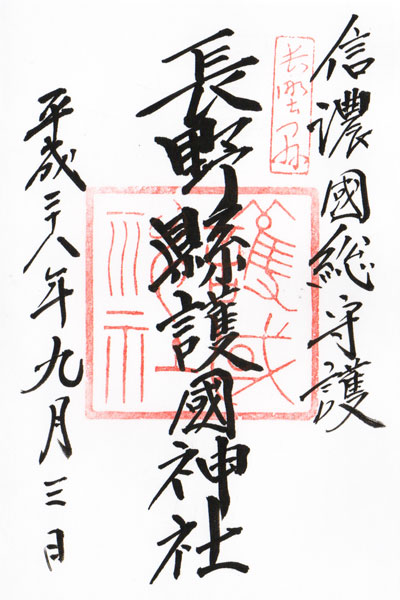 信濃國総守護
長野縣護國神社
平成二十八年九月三日
長野縣